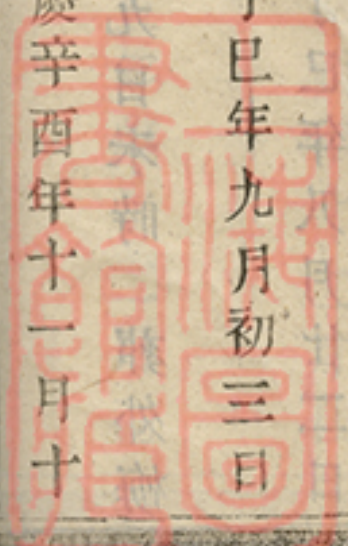 丁巳年九月初三日
慶辛酉年十一月十
上海圖
書館藏